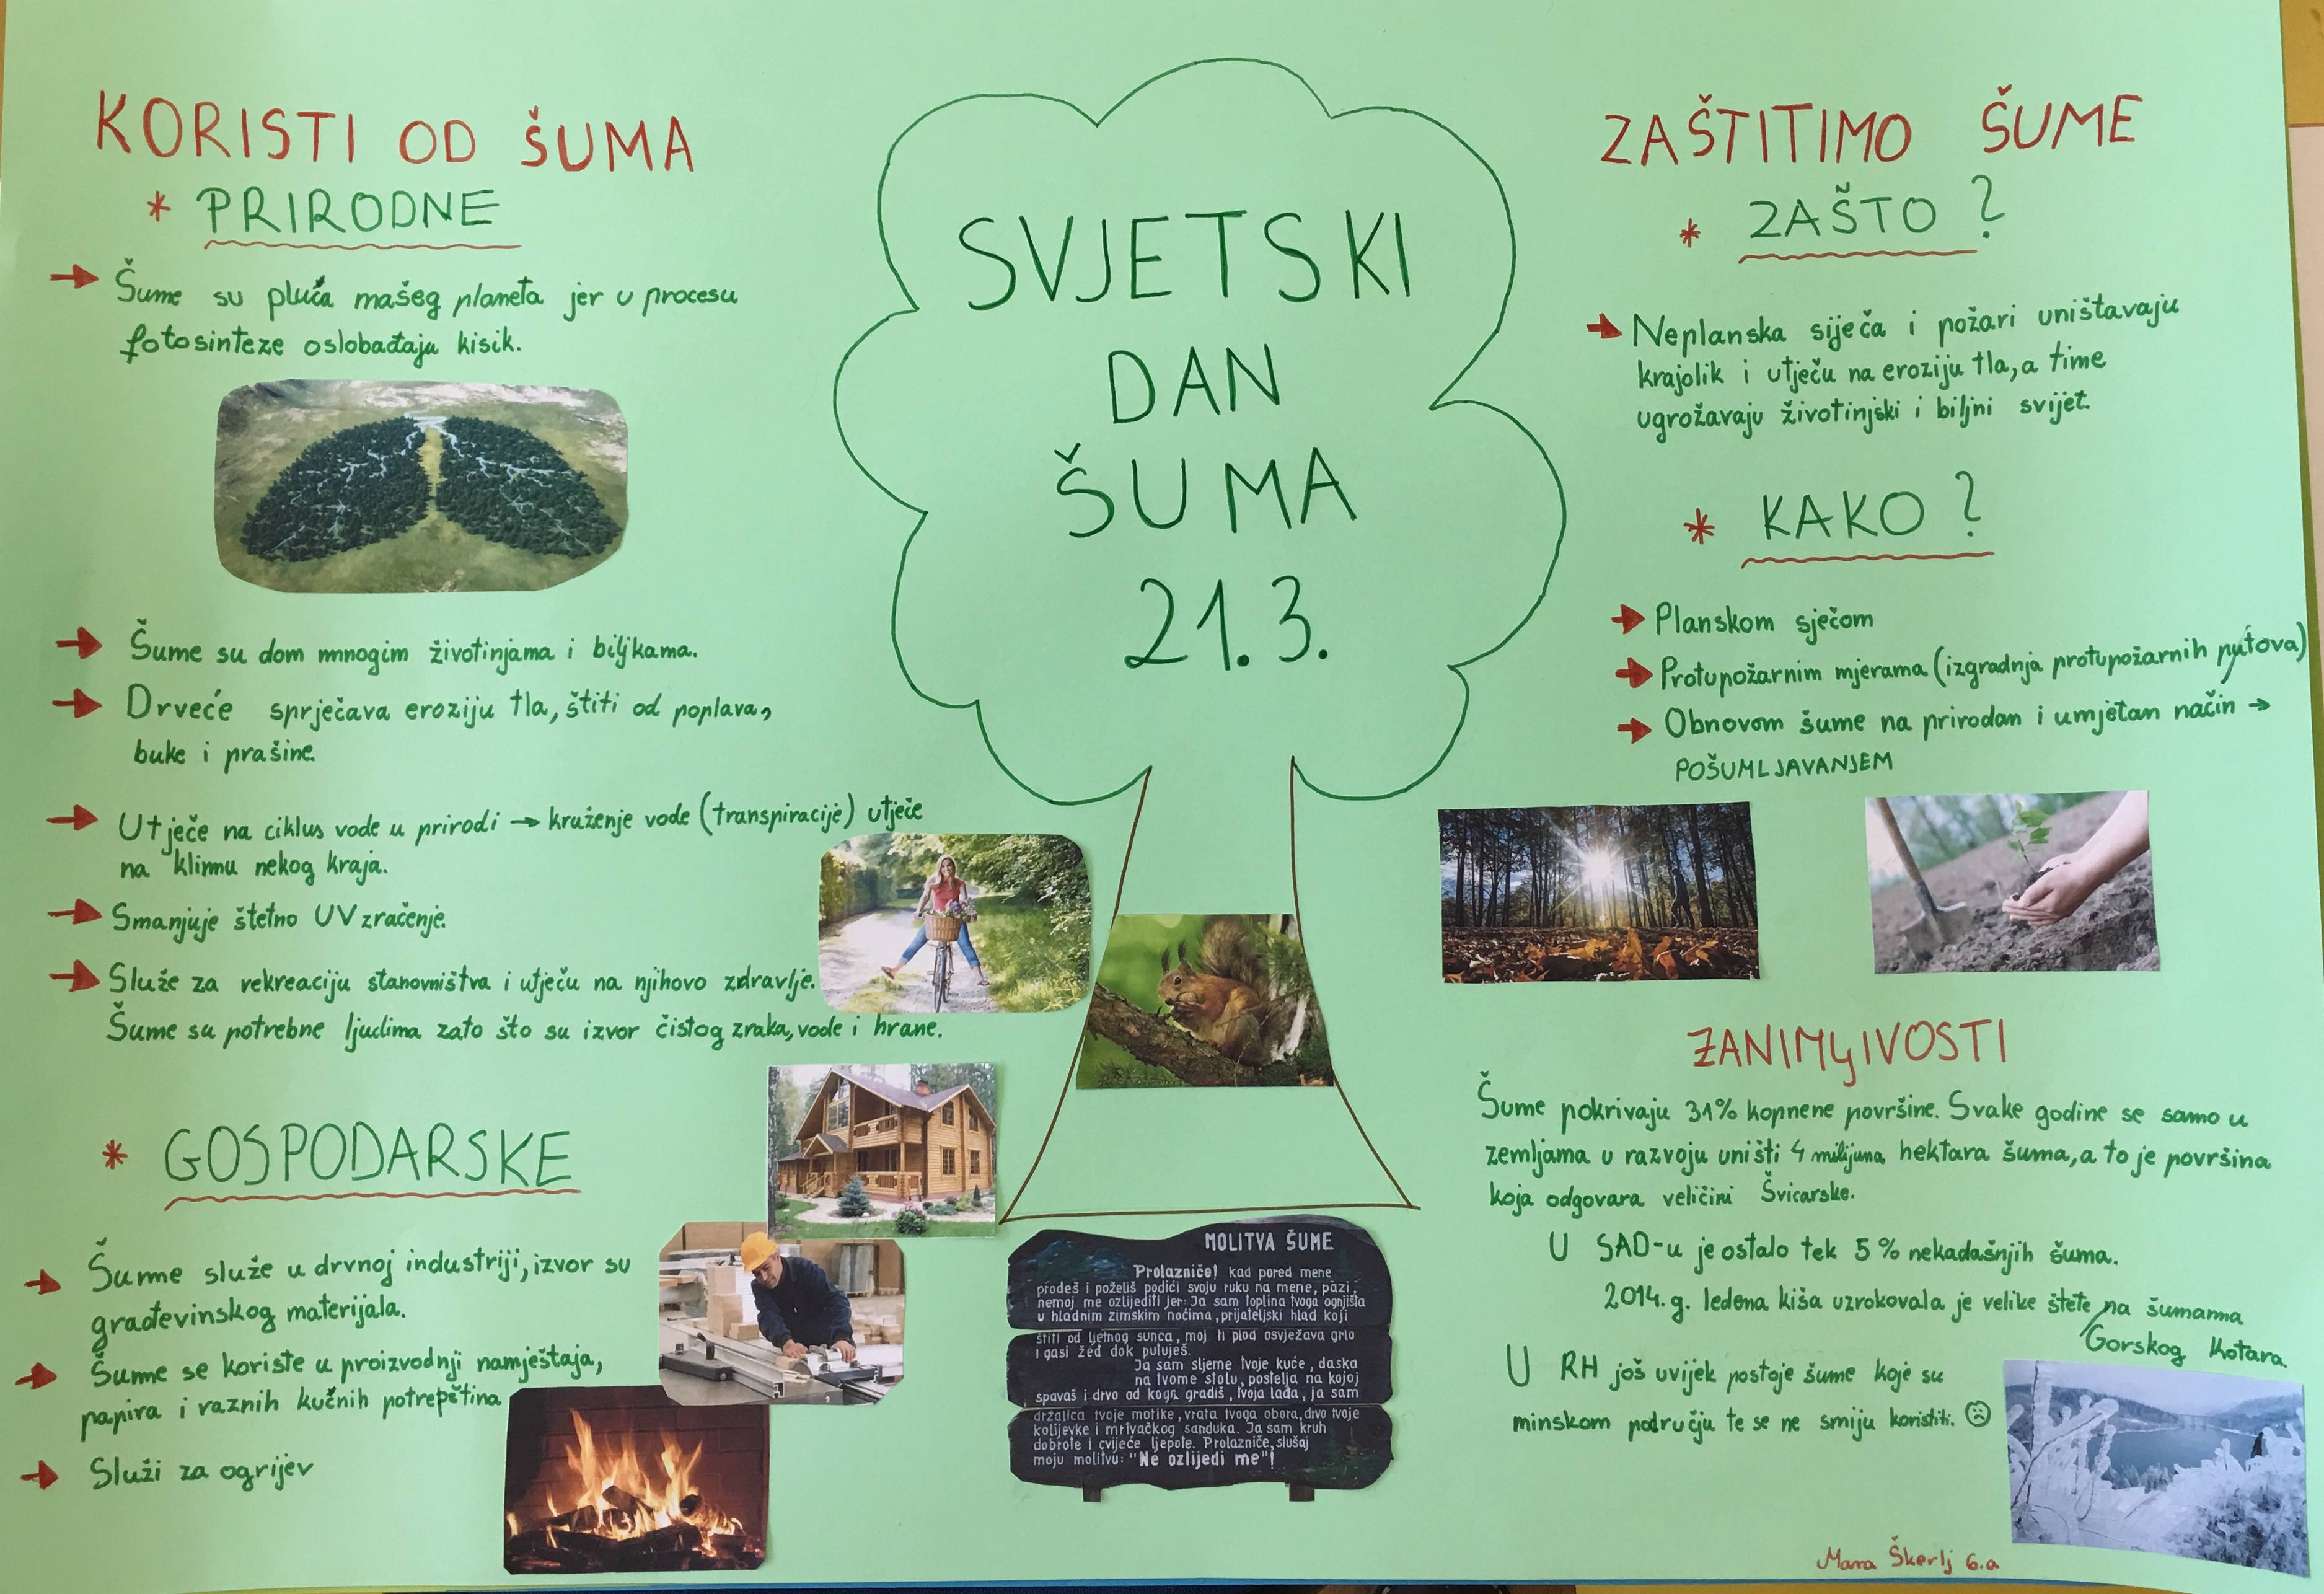 KORISTI OD ŠUMA
* PRIRODNE
→ Šume su pluća našeg planeta jer u procesu
fotosinteze oslobađaju kisik.
→ Šume su dom mnogim životinjama i biljkama.
→ Drveće sprječava eroziju tla, štiti od poplava,
buke i prašine.
→ Utječe na ciklus vode u prirodi → kruženje vode (transpiracije) utječe
na klimu nekog kraja.
→ Smanjuje štetno UV zračenje.
→ Služe za rekreaciju stanovništva i utječu na njihovo zdravlje.
Šume su potrebne ljudima zato što su izvor čistog zraka, vode i hrane.
* GOSPODARSKE
→ Šume služe u drvnoj industriji, izvor su
građevinskog materijala.
→ Šume se koriste u proizvodnji namještaja,
papira i raznih kučnih potrepština
→ Služi za ogrijev
SVJETSKI
DAN
ŠUMA
21.3.
MOLITVA ŠUME
Prolazniče! kad pored mene
prođeš i poželiš podići svoju ruku na mene, pazi,
nemoj me ozlijediti jer: Ja sam toplina tvoga ognjišta
u hladnim zimskim noćima, prijateljski hlad koji
štiti od ljetnog sunca, moj ti plod osvježava grlo
i gasi žeđ dok putuješ.
Ja sam sljeme tvoje kuće, daska
na tvome stolu, postelja na kojoj
spavaš i drvo od koga gradiš, tvoja lađa, ja sam
držalica tvoje motike, vrata tvoga obora, drvo tvoje
kolijevke i mrtvačkog sanduka. Ja sam kruh
dobrote i cvijeće ljepote. Prolazniče, slušaj
moju molitvu: "Ne ozlijedi me"!
ZAŠTITIMO ŠUME
* ZAŠTO?
→ Neplanska siječa i požari uništavaju
krajolik i utječu na eroziju tla, a time
ugrožavaju životinjski i biljni svijet.
* KAKO?
→ Planskom sječom
→ Protupožarnim mjerama (izgradnja protupožarnih putova)
→ Obnovom šume na prirodan i umjetan način →
POŠUMLJAVANJEM
ZANIMLJIVOSTI
Šume pokrivaju 31% kopnene površine. Svake godine se samo u
zemljama u razvoju uništi 4 milijuna hektara šuma, a to je površina
koja odgovara veličini Švicarske.
U SAD-u je ostalo tek 5% nekadašnjih šuma.
2014. g. ledena kiša uzrokovala je velike štete na šumama
Gorskog Kotara
U RH još uvijek postoje šume koje su
minskom području te se ne smiju koristiti. ☹
Mara Škerlj 6.a